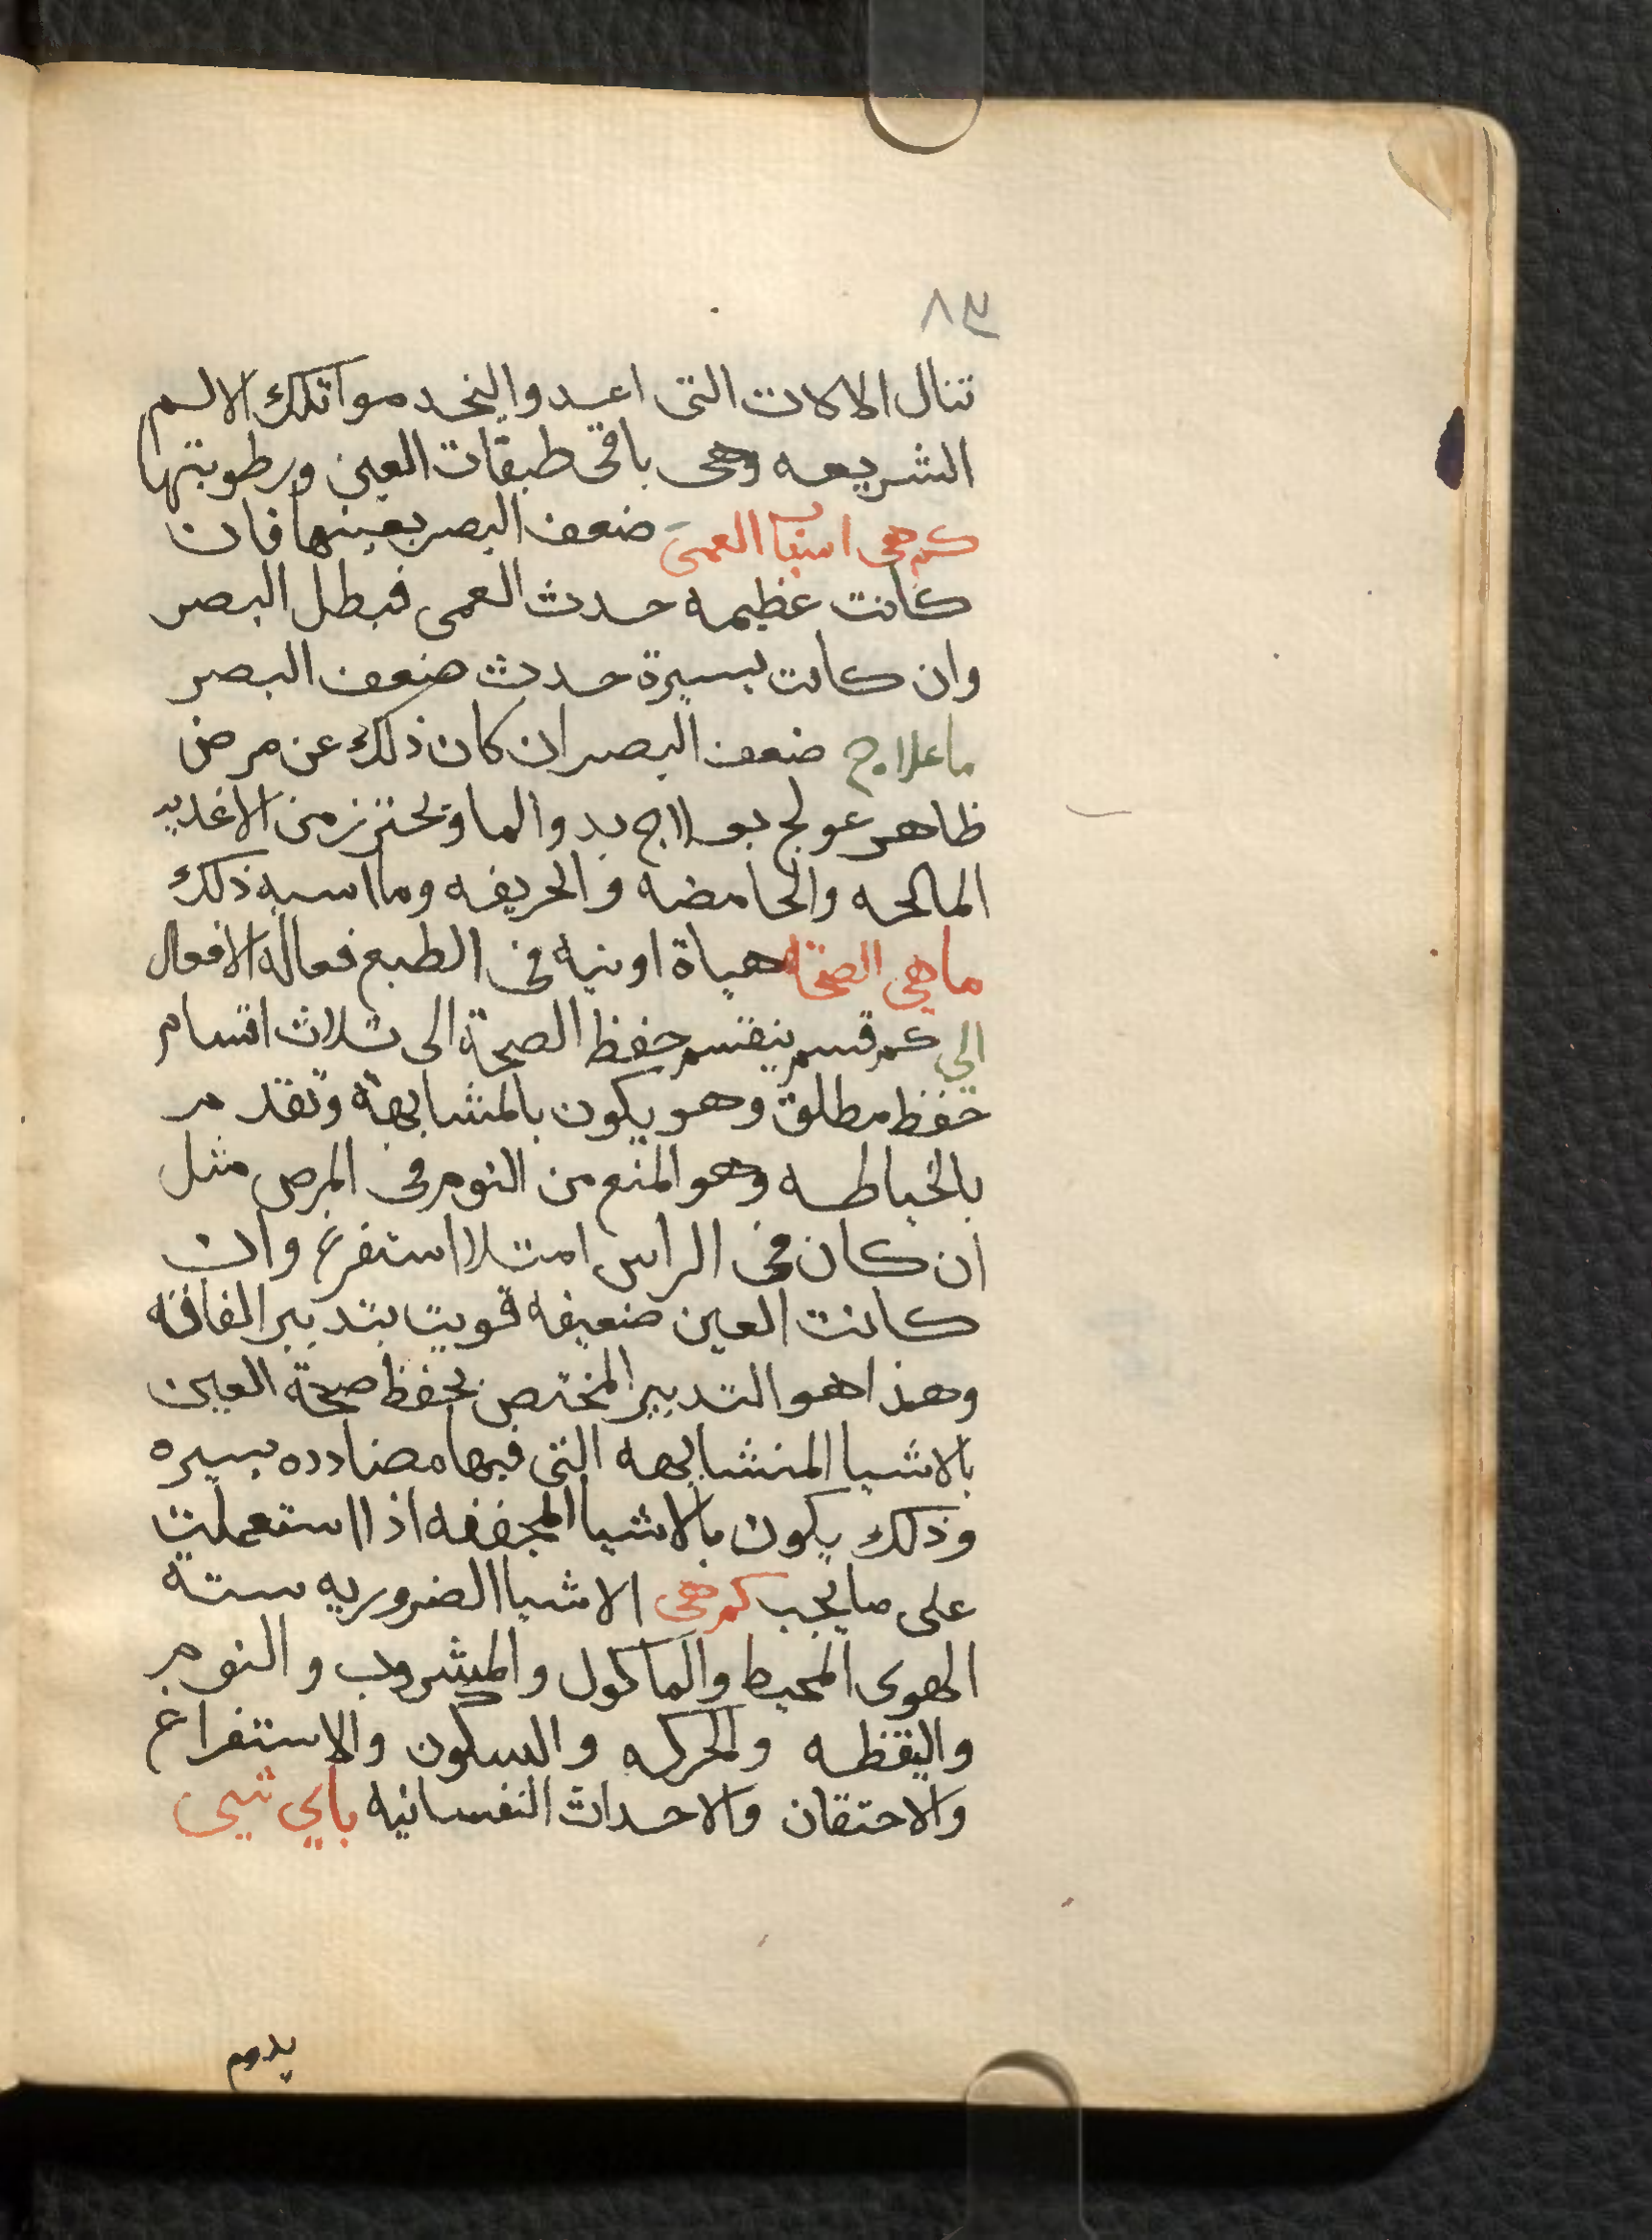 ٨٣
تنال الالات التى اعدوا ليخدموا تلك الالم
الشريعه وهى باقى طبقات العين ورطوبتها
كم هى اسباب العمى ضعف البصر بعينها فان
كانت عظيمه حدث العمى فبطل البصر
وان كانت يسيرة حدث ضعف البصر
ما علاج ضعف البصر ان كان ذلك عن مرض
ظاهر عولج بعلاج بدو الما وتحترز من الاغديه
المالحه والحامضه والحريفه وما اسبه ذلك
ما هى الصحة هياة اوبنيه فى الطبع فعاله الافعال
الي كم قسم ينقسم حفظ الصحة الى ثلاث اقسام
حفظ مطلق وهو يكون بالمشابهة وتقدم
بالخياطه وهو المنع من النوم فى المرض مثل
ان كان فى الراس امتلا استفرغ وان
كانت العين ضعيفه قويت بتدبير الفاقه
وهذا هو التدبير المختص بحفظ صحة العين
بالاشيا المنشابهه التى فيها مضادده يسيره
وذلك يكون بالاشيا المجففه اذا استعملت
على ما يجب كم هى الاشيا الضروريه ستة
الهوى المحيط والماكول والمشروب والنوم
واليقظه والحركه والسكون والاستفراغ
والاحتقان والاحداث النفسانيه باي شيى
يدوم